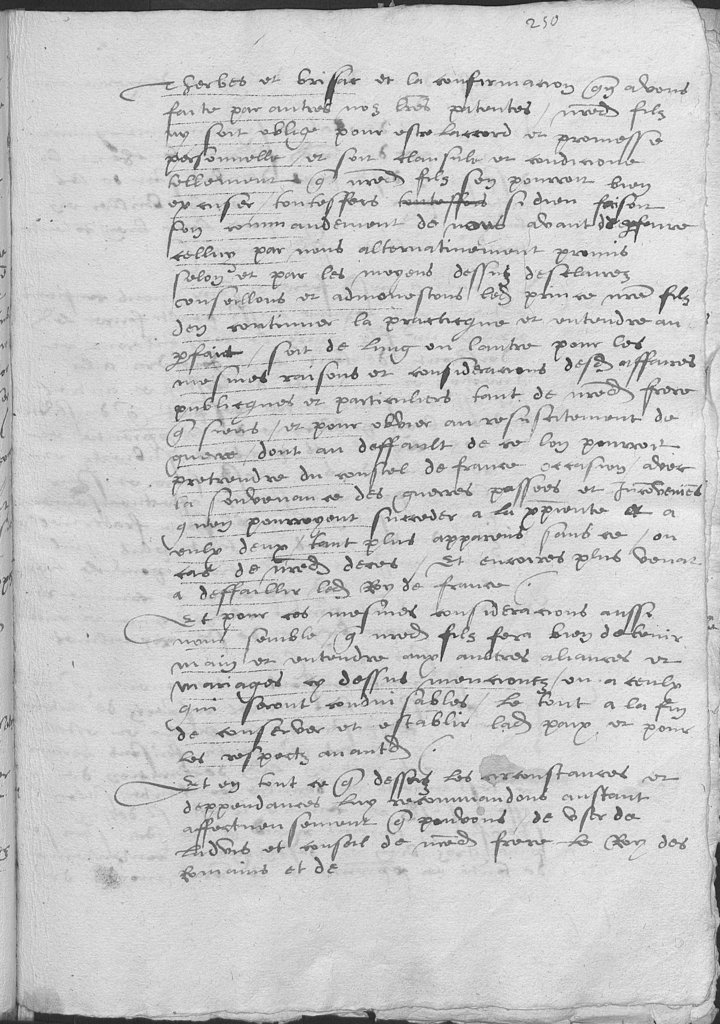 250
Therbes et brissac et la confirmacion qu'en avons
faite par autres noz lres patentes / nred filz
ny soit oblige pour estre laccord et promesse
personnelle / et soit clausule et condicione
tellement q nred filz sen pourroit bien
excuser, touteffois touteffois si dieu faisoit
son commandement de nous avant de pfaire
celluy par nous alternativement promis
selon et par les moyens dessus desclairez
conseillons et admonestons led prince nre filz
den continuer la practicque et entendre au
pfait, soit de lung ou lautre pour les
mesmes raisons et consideracions desd affaires
publicques et particuliers tant de nred frere
q siens, et pour obvier au resuscitement de
guerre, dont au deffault de ce lon pourroit
pretendre du coustel de france occasion, avec
la souvenance des guerres passees et inconveniens
quen pourroyent succeder a la xpiente et a
eulx deux tant plus apparens sans ce, ou
cas de nred deces, Et encoires plus venat
a deffaillir led Roy de france /
Et pour ces mesmes consideracions aussi
nous semble q nred filz fera bien de tenir
main et entendre aux autres aliances et
mariages cy dessus mencionez, ou a ceulx
qui seront conduisables, le tout a la fin
de conserver et establir lad paix et pour
les respectz avantd /
Et en tout ce q dessus les circonstances et
deppendances luy recommandons autant
affectueusement q pouvons, de user de
ladvis et conseil de nred frere le Roy des
Romains et de